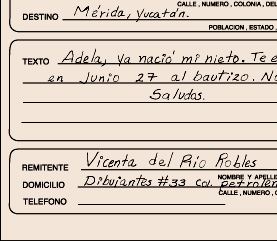 CALLE, NUMERO, COLONIA, DEL
DESTINO Mérida, Yucatán.
POBLACION, ESTADO,
TEXTO Adela, ya nació mi nieto. Te e
en Junio 27 al bautizo. No
Saludos.
REMITENTE Vicenta del Río Robles
NOMBRE Y APELLI
DOMICILIO Dibujantes #33 col. petrolen
CALLE, NUMERO, C
TELEFONO